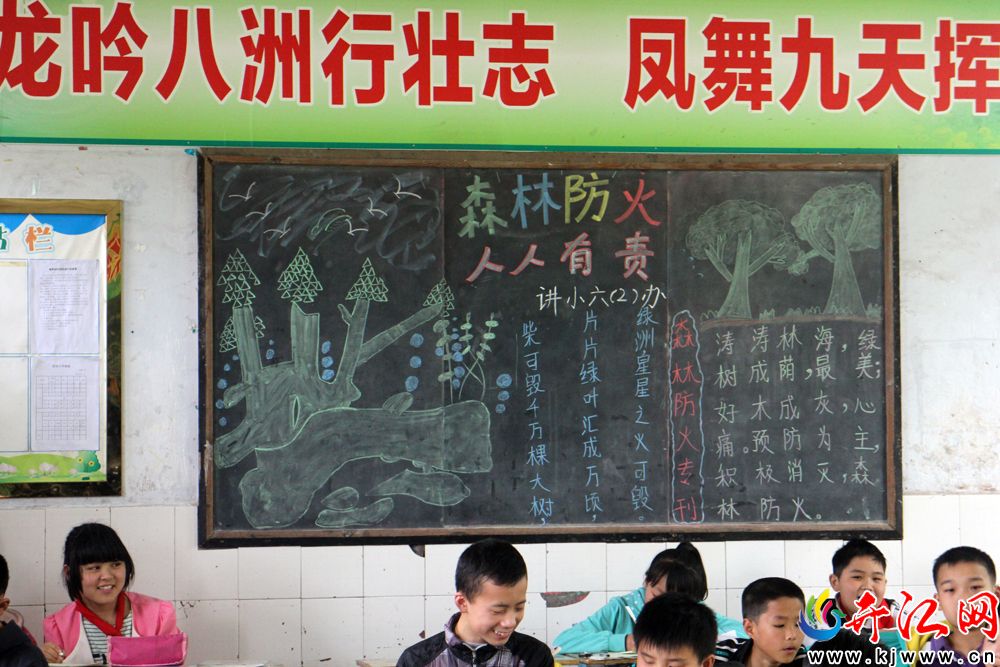 龙吟八洲行壮志 凤舞九天挥
栏
森林防火
人人有责
讲小六(2)办
柴可毁千万棵大树,
片片绿叶汇成万顷,
绿洲星星之火可毁。
森林防火专刊
涛涛林海,绿
树成荫,最美;
好木成灰,心
痛。预防为主,
积极消灭,森
林防火。
开江网
www.kjwww.cn